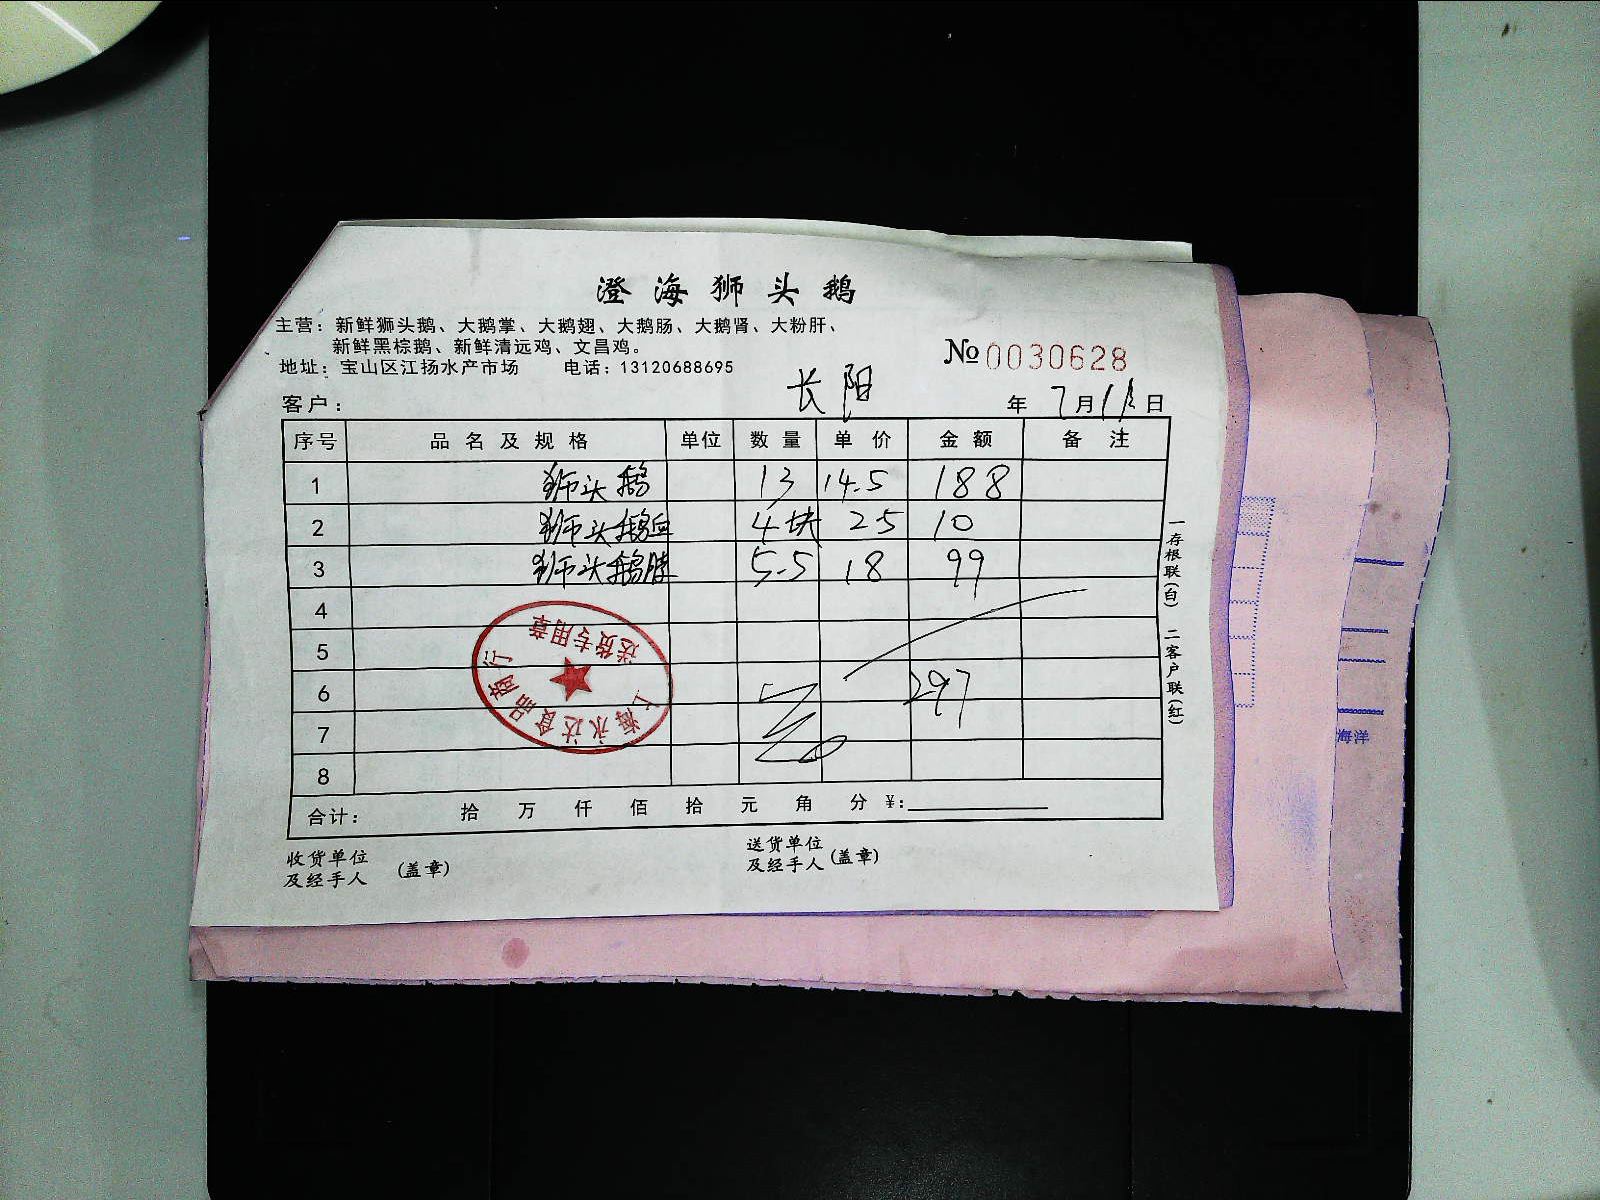 澄海狮头鹅
主营：新鲜狮头鹅、大鹅掌、大鹅翅、大鹅肠、大鹅肾、大粉肝、
新鲜黑棕鹅、新鲜清远鸡、文昌鸡。
地址：宝山区江扬水产市场 电话：13120688695
№0030628
客户： 长阳 年 7月 日
序号 品名及规格 单位 数量 单价 金额 备注
1 狮头鹅 13 14.5 188
2 狮头鹅血 4块 25 10
3 狮头鹅 5.5 18 99
4
5
6 297
7
8
合计： 拾 万 仟 佰 拾 元 角 分 ¥:
收货单位
及经手人 (盖章)
送货单位
及经手人 (盖章)
一存根联(白) 二客户联(红)
上海永达食品商行
送货专用章
海洋